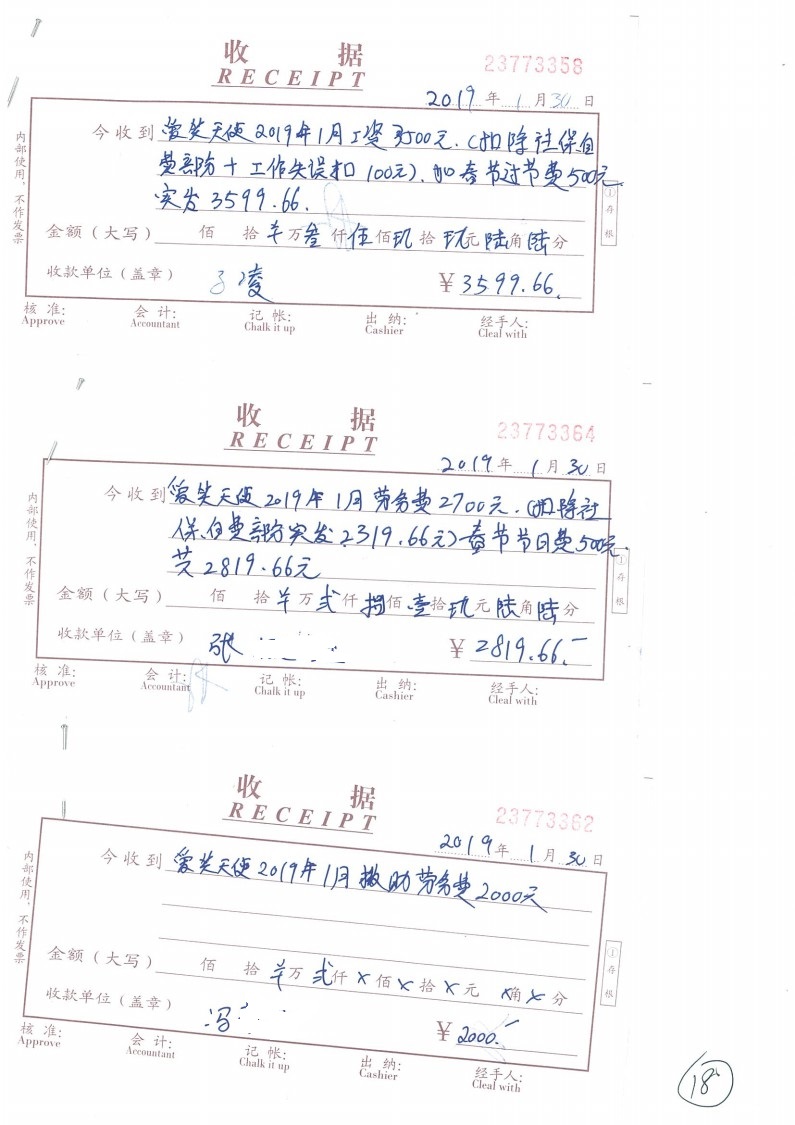 收 据
RECEIPT
23773358
2019年1月30日
今收到爱笑天使2019年1月工资3500元.(扣除社保自
费部份+工作失误扣100元).加春节过节费500元
实发3599.66.
金额(大写) 佰 拾 羊万叁仟伍佰玖拾玖元陆角陆分
收款单位(盖章) 凌 ¥3599.66.
核 准: 会 计: 记 帐: 出 纳: 经手人:
Approve Accountant Chalk it up Cashier Cleal with
内部使用,不作发票
①存根
收 据
RECEIPT
23773364
2019年1月30日
今收到爱笑天使2019年1月劳务费2700元.(扣除社
保.自费部防实发2319.66元)春节节日费500元
共2819.66元
金额(大写) 佰 拾 羊万贰仟捌佰壹拾玖元陆角陆分
收款单位(盖章) 张 ¥2819.66.-
核 准: 会 计: 记 帐: 出 纳: 经手人:
Approve Accountant Chalk it up Cashier Cleal with
内部使用,不作发票
①存根
收 据
RECEIPT
23773362
2019年1月30日
今收到爱笑天使2019年1月救助劳务费2000元
金额(大写) 佰 拾 羊万贰仟×佰×拾×元×角×分
收款单位(盖章) 冯 ¥2000.-
核 准: 会 计: 记 帐: 出 纳: 经手人:
Approve Accountant Chalk it up Cashier Cleal with
内部使用,不作发票
①存根
18